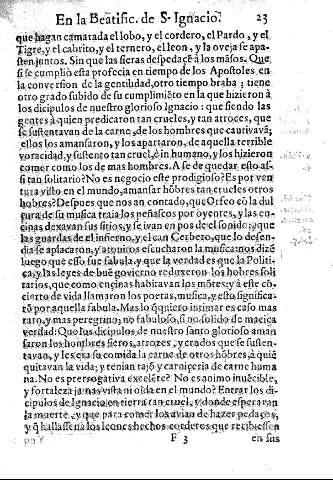 En la Beatific. de S. Ignacio. 23
que hagan camarada el lobo, y el cordero, el Pardo, y el
Tigre, y el cabrito, y el ternero, el leon, y la oveja se apa-
sten juntos. Sin que las fieras despedacẽ a los mãsos. Que
si se cumpliò esta profecia en tiempo de los Apostoles en
la conversion de la gentilidad, otro tiempo braba; tiene
otro grado subido de su cumplimiẽto en la que hizieron à
los dicipulos de nuestro glorioso Ignacio: que siendo las
gentes à quien predicaron tan crueles, y tan atroces, que
se sustentavan de la carne, de los hombres que cautivavã;
ellos los amansaron, y los apartaron, de aquella terrible
voracidad, y sustento tan cruel, è in humano, y los hizieron
comer como los de mas hombres. A se de quedar esto as-
si tan solitario? No es negocio este prodigioso? Es por ven
tura visto en el mundo, amansar hõbres tan crueles otros
hobres? Despues que nos an contado, que Orfeo cõ la dul
çura de su musica traia los peñascos por oyentes, y las en-
cinas dexavan sus sitios, y se ivan en pos de el sonido; que
las guardas de el infierno, y el can Cerbero, que lo defen-
dia se aplacaron, y atonitos escucharon la musica: nos dizẽ
luego que esso fue fabula, y que la verdad es que la Politi-
ca, y las leyes de buẽ govierno reduxeron los hobres soli
tarios, que como encinas habitavan los mõtes: y à este cõ-
cierto de vida llamaron los poetas, musica, y esto significa-
rõ por aquella fabula. Mas lo q̃ quiero intimar es caso mas
raro, y mas peregrino; no fabuloso, sino solido de maciça
verdad: Que los dicipulos de nuestro santo glorioso aman
saron los hombres fieros, atrozes, y crudos que se susten-
tavan, y les era su comida la carne de otros hõbres, à quiẽ
quitavan la vida; y tenian rajo y carniçeria de carne huma
na. No es prerrogativa excelẽte? No es animo invẽcible,
y fortaleza jamas vista ni oida en el mundo? Entrar los di-
cipulos de Ignacio en tierra tan cruel, y donde esperavan
la muerte, y que para comer los avian de hazer pedaços,
y q̃ hallassẽ na los leones hechos corderos que recibiessen
F 3 en sus